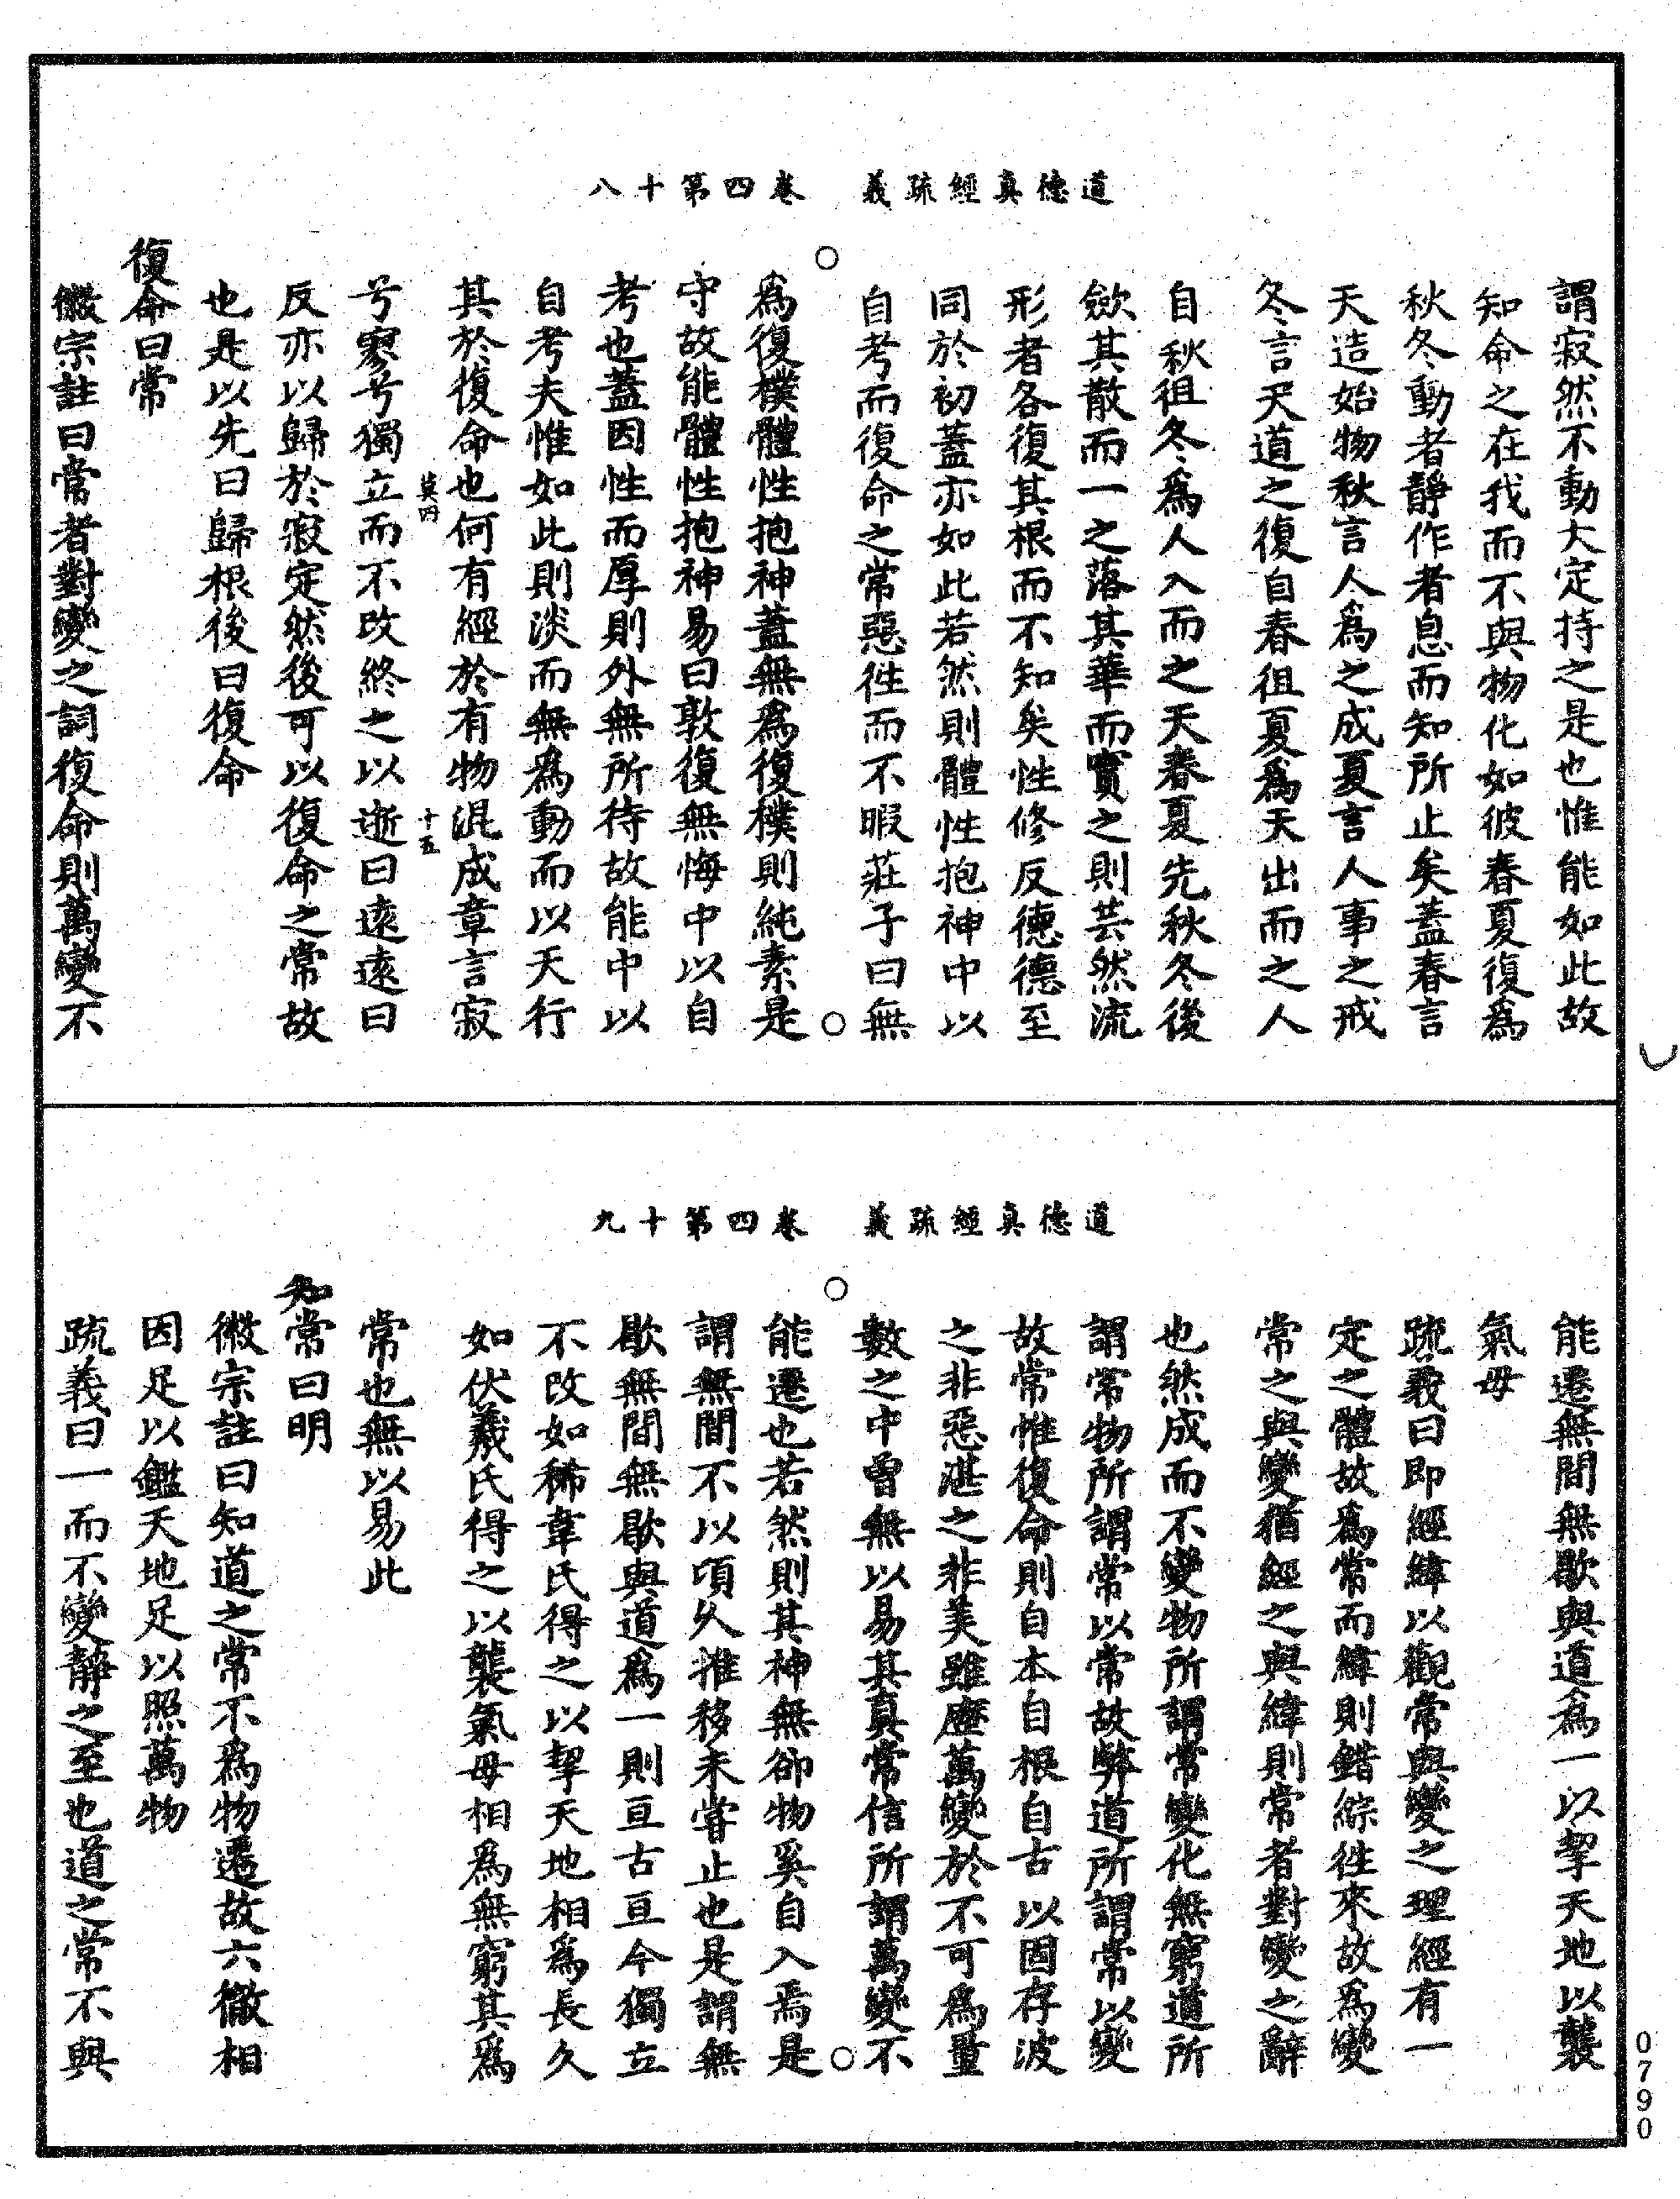 道德真經疏義　卷四第十八
謂寂然不動大定持之是也惟能如此故
知命之在我而不與物化如彼春夏復為
秋冬動者靜作者息而知所止矣蓋春言
天造始物秋言人為之成夏言人事之戒
冬言天道之復自春徂夏為天出而之人
自秋徂冬為人入而之天春夏先秋冬後
斂其散而一之落其華而實之則芸然流
形者各復其根而不知矣性修反德德至
同於初蓋亦如此若然則體性抱神中以
自考而復命之常惡往而不暇莊子曰無
為復樸體性抱神蓋無為復樸則純素是
守故能體性抱神易曰敦復無悔中以自
考也蓋因性而厚則外無所待故能中以
自考夫惟如此則淡而無為動而以天行
其於復命也何有經於有物混成章言寂
莫四　十五
兮寥兮獨立而不改終之以逝曰遠遠曰
反亦以歸於寂定然後可以復命之常故
也是以先曰歸根後曰復命
復命曰常
徽宗註曰常者對變之詞復命則萬變不
道德真經疏義　卷四第十九
能遷無間無歇與道為一以挈天地以襲
氣母
疏義曰即經緯以觀常與變之理經有一
定之體故為常而緯則錯綜往來故為變
常之與變猶經之與緯則常者對變之辭
也然成而不變物所謂常變化無窮道所
謂常物所謂常以常故弊道所謂常以變
故常惟復命則自本自根自古以固存波
之非惡湛之非美雖歷萬變於不可為量
數之中曾無以易其真常信所謂萬變不
能遷也若然則其神無卻物奚自入焉是
謂無間不以頃久推移未嘗止也是謂無
歇無間無歇與道為一則亘古亘今獨立
不改如狶韋氏得之以挈天地相為長久
如伏羲氏得之以襲氣母相為無窮其為
常也無以易此
知常曰明
徽宗註曰知道之常不為物遷故六徹相
因足以鑑天地足以照萬物
疏義曰一而不變靜之至也道之常不與
0790